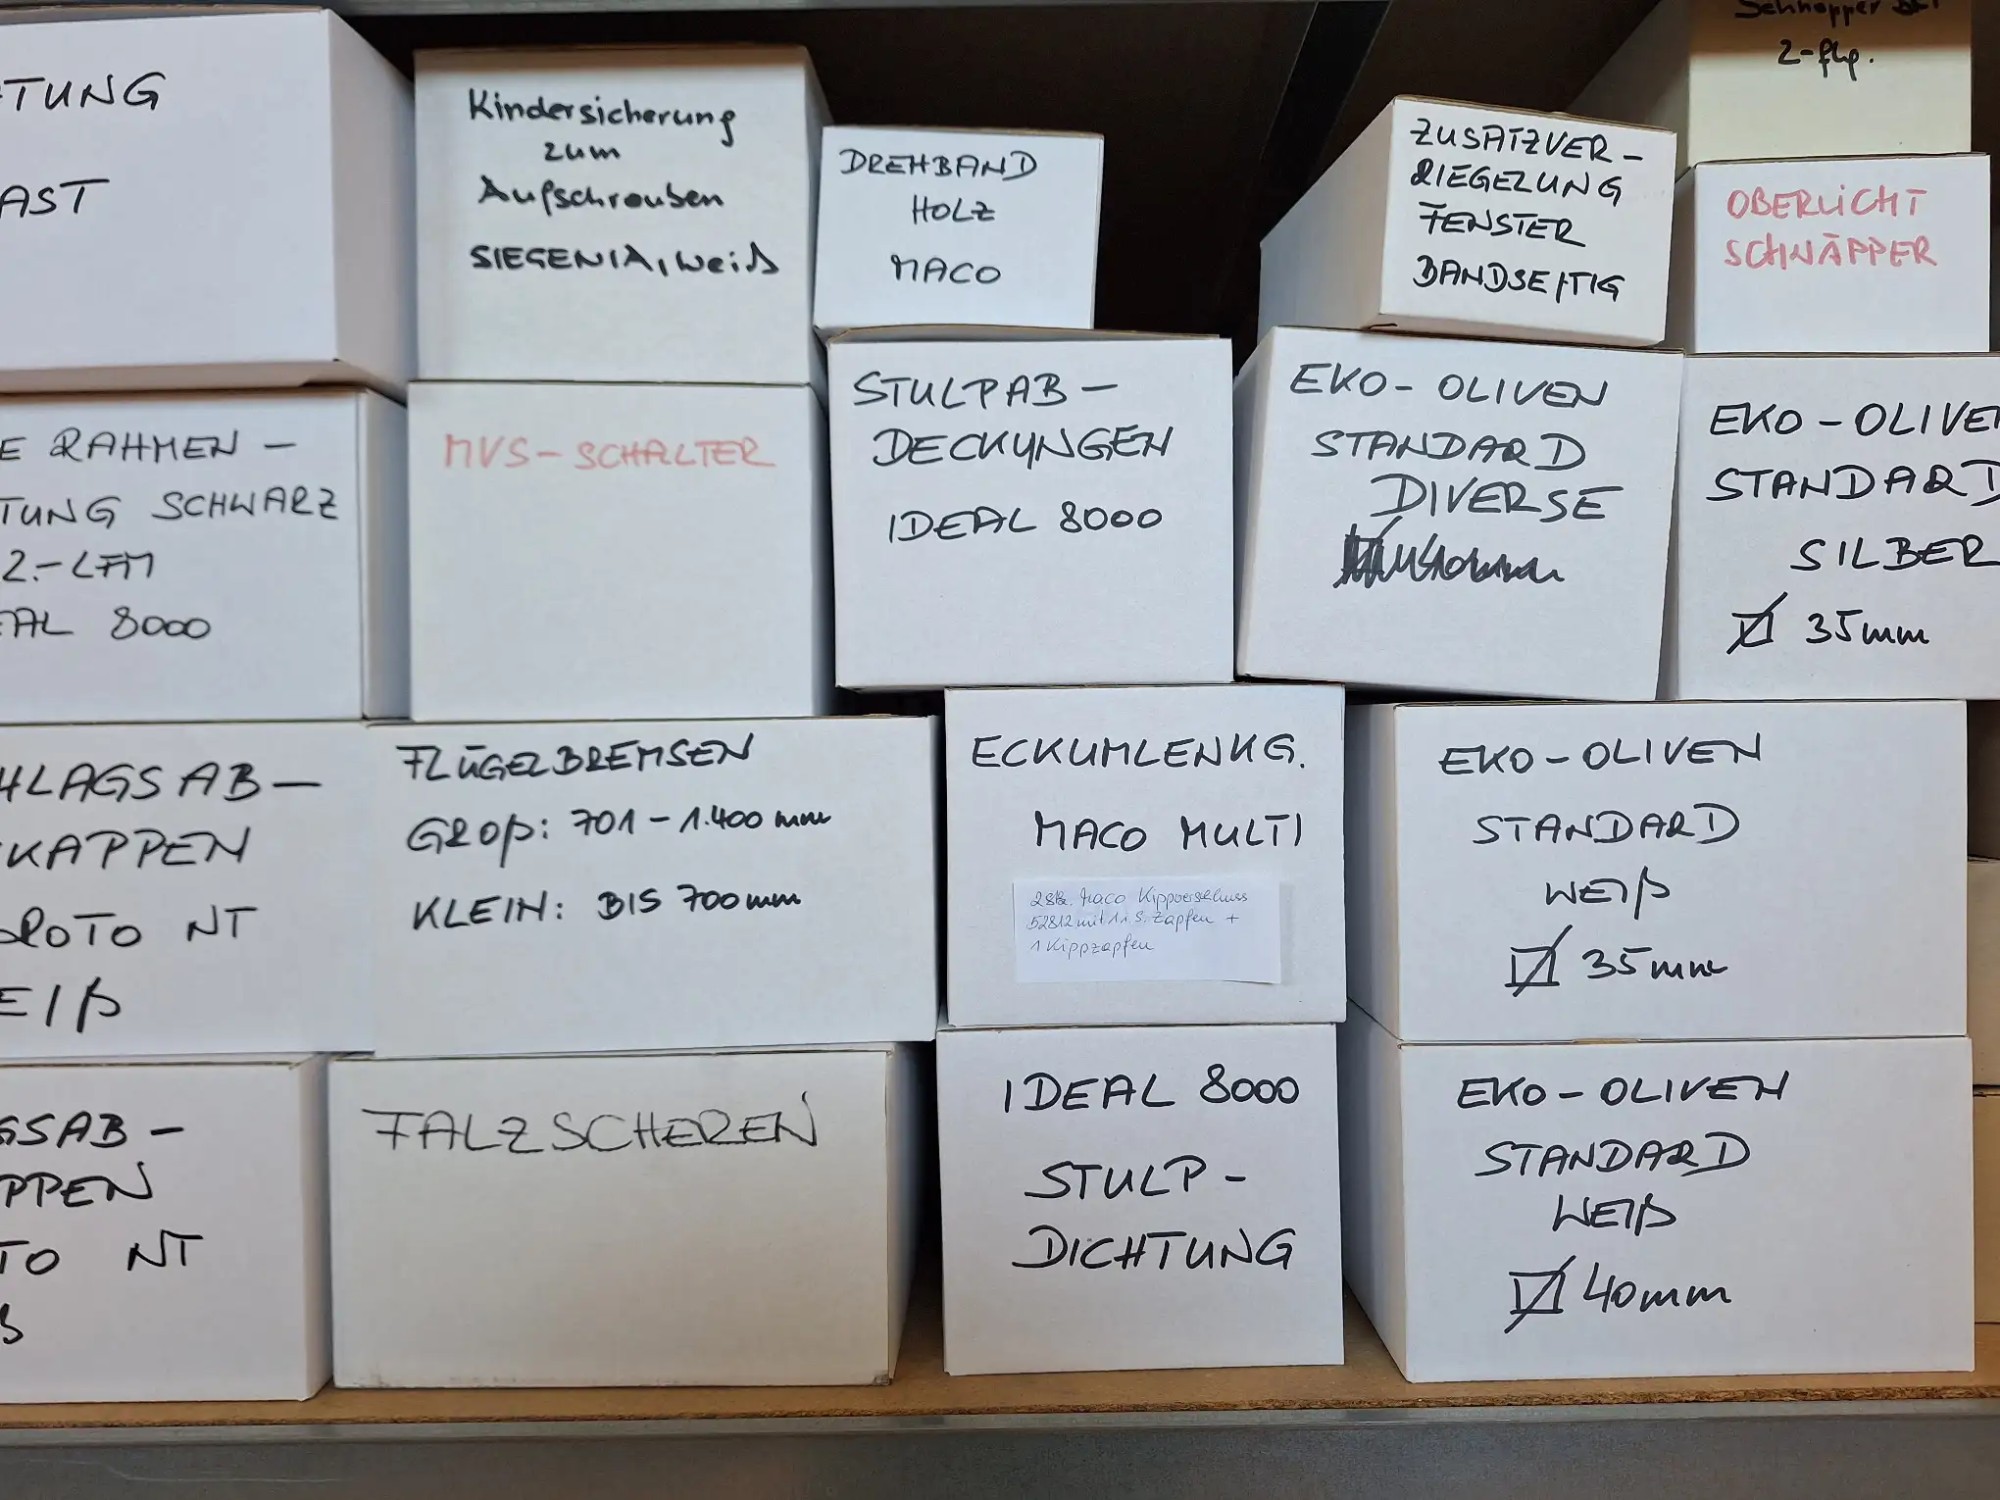 TUNG
AST
Kindersicherung
zum
Aufschrauben
SIEGENIA, weiß
DREHBAND
HOLZ
MACO
ZUSATZVER-
RIEGELUNG
FENSTER
BANDSEITIG
2-flg.
OBERLICHT
SCHNÄPPER
E RAHMEN-
TUNG SCHWARZ
2.-LFM
EAL 8000
MVS-SCHALTER
STULPAB-
DECKUNGEN
IDEAL 8000
EKO-OLIVEN
STANDARD
DIVERSE
EKO-OLIVEN
STANDARD
SILBER
35mm
HLAGSAB-
KAPPEN
ROTO NT
EIß
FLÜGELBREMSEN
GROß: 701-1.400mm
KLEIN: BIS 700mm
ECKUMLENKG.
MACO MULTI
2 Stk. Maco Kippverschluss
52812 mit 1 i.S. Zapfen +
1 Kippzapfen
EKO-OLIVEN
STANDARD
WEIß
35mm
GSAB-
PPEN
TO NT
ß
FALZSCHEREN
IDEAL 8000
STULP-
DICHTUNG
EKO-OLIVEN
STANDARD
WEIß
40mm